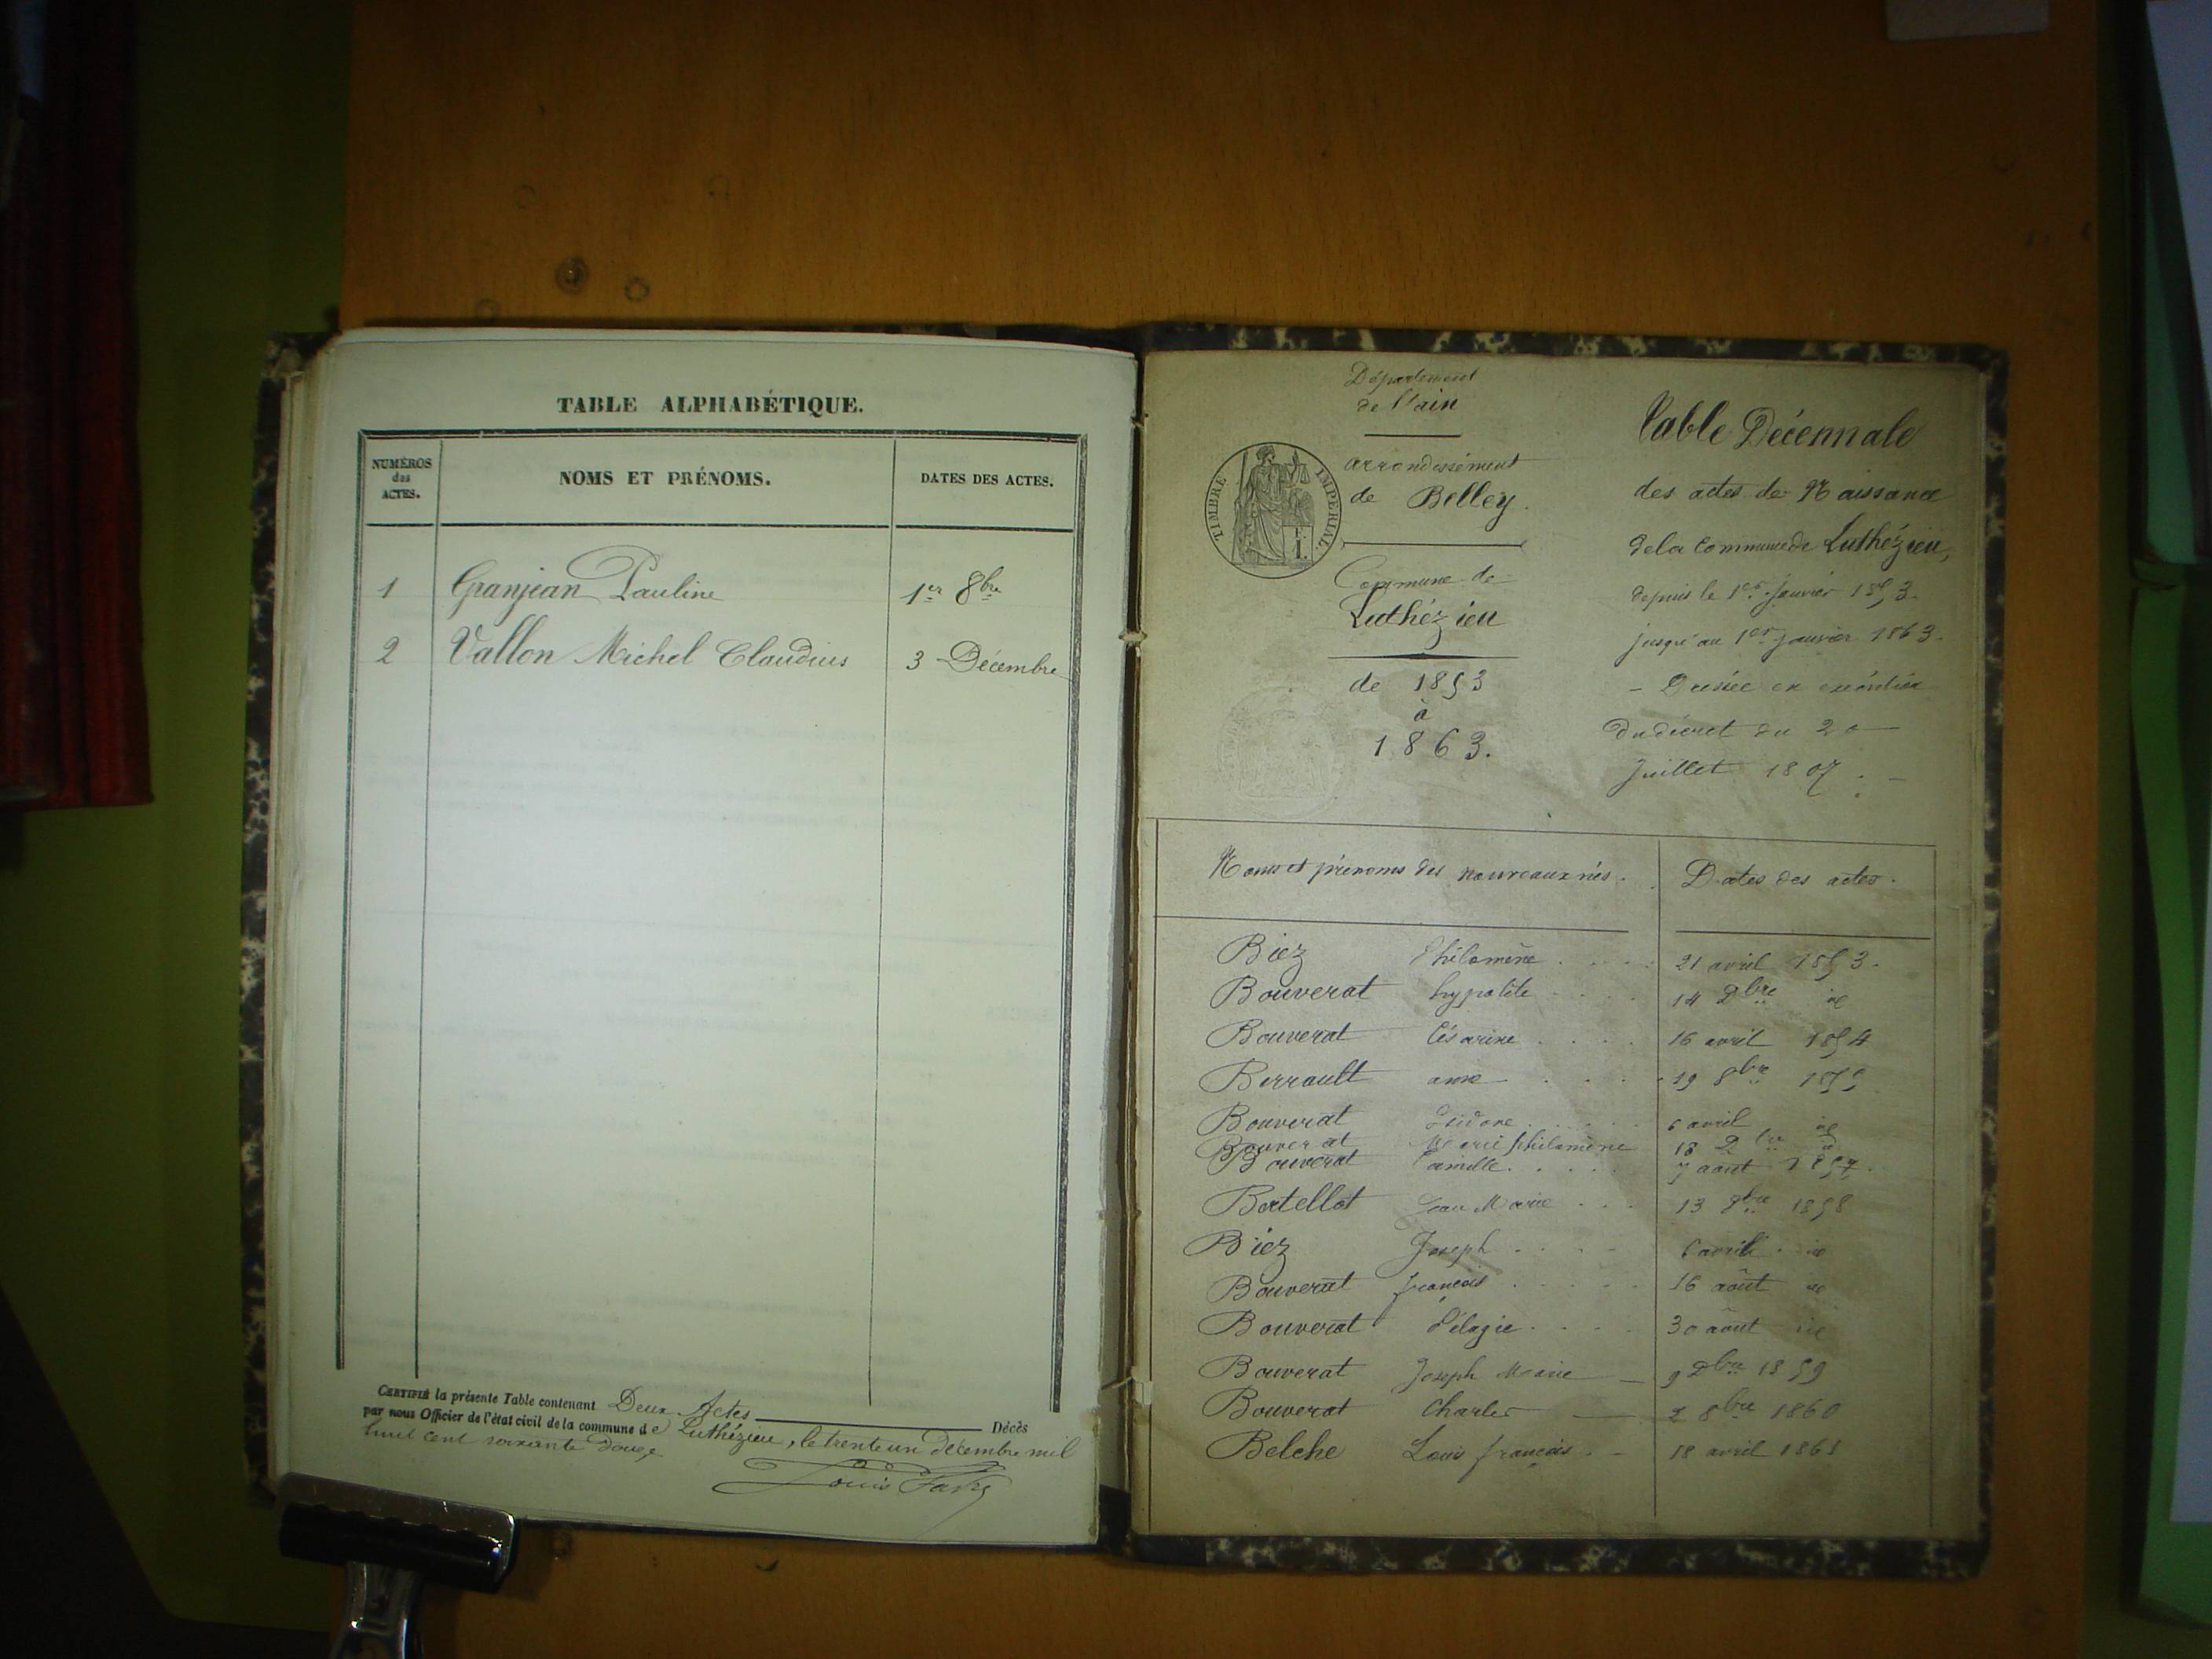 TABLE ALPHABÉTIQUE.
NUMÉROS des ACTES.
NOMS ET PRÉNOMS.
DATES DES ACTES.
1 Granjean Pauline 1er 8bre
2 Vallon Michel Claudius 3 Décembre
CERTIFIÉ la présente Table contenant Deux Actes Décès
par nous Officier de l'état civil de la commune de Luthézieu, le trente un décembre mil
huit cent soixante douze
Louis Favre
Département
de l'ain
arrondissément
de Belley.
TIMBRE IMPÉRIAL
Commune de
Luthézieu
de 1853
à
1863.
Table Décennale
des actes de Naissance
de la Commune de Luthézieu,
depuis le 1er Janvier 1853.
jusqu'au 1er janvier 1863.
- Dressée en exécution
du décret du 20
Juillet 1807. -
Noms et prénoms des nouveaux nés. Dates des actes.
Biez Philomène . . . . 21 avril 1853.
Bouverat hypolite . . . . 14 bre id
Bouverat Césarine . . . . 16 avril 1854
Berrault anne . . . . 19 8bre 1855
Bouverat Isidore . . . . 6 avril id
Bouverat Marie philomène 18 bre id
Bouverat Camille . . . . 7 août 1857.
Bertellot Jean Marie . . . 13 bre 1858
Biez Joseph . . . . 6 avril . id
Bouverat françois . . . . 16 août id
Bouverat Pélagie . . . . 30 août id
Bouverat Joseph Marie — 9 bre 1859
Bouverat Charles — 2 8bre 1860
Belche Louis françois . — 18 avril 1861